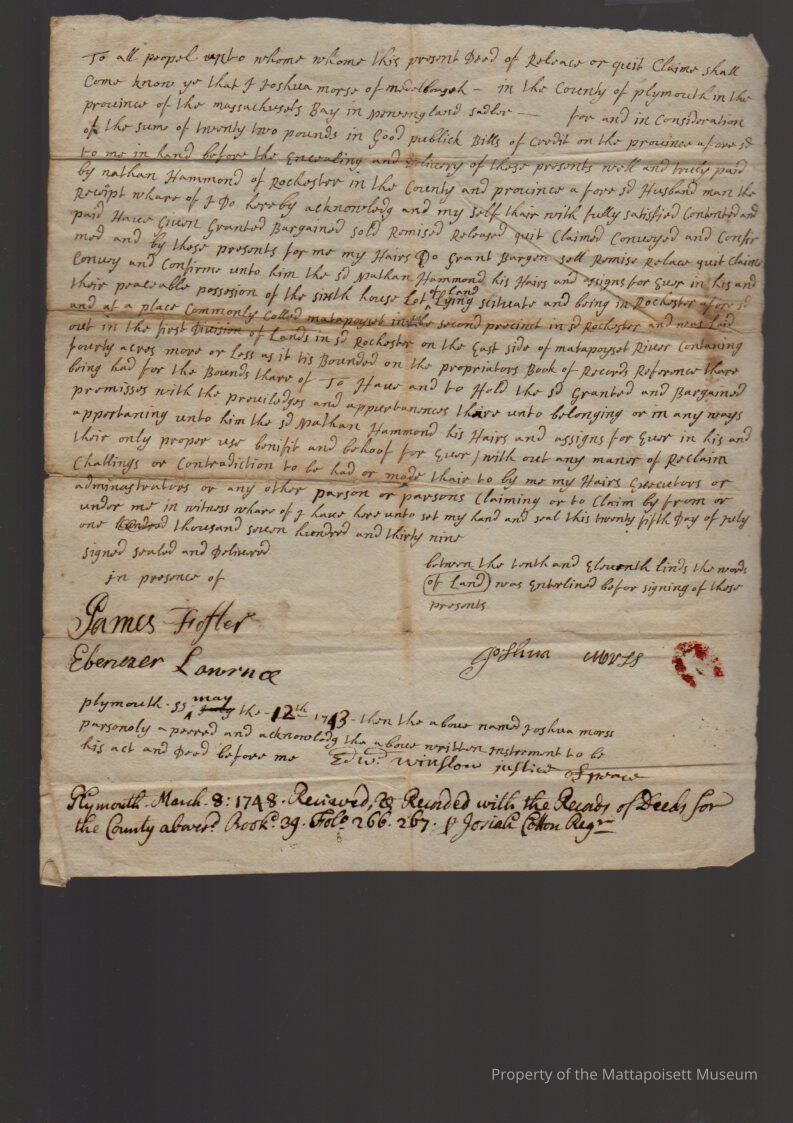 To all peopel unto whome whome this present Deed of Release or quit Claime shall
Come know ye that I Joshua morse of medelbough - in the County of plymouth in the
province of the massachusets Bay in newengland sadler — for and in Consideration
of the sume of twenty two pounds in Good publick Bills of Credit on the province afore sd
to me in hand before the Ensealing and Delivery of these presents well and truly paid
by nathan Hammond of Rochester in the County and province a fore sd Husband man the
Receipt whare of I Do hereby acknowledg and my self thair with fully satisfied Contented and
paid Haue Giuen Granted Bargained sold Remised Released quit Claimed Conveyed and Confir
med and by these presents for me my Hairs Do Grant Bargen sell Remise Relace quit Claime
Convey and Confirme unto him the sd Nathan Hammond his Hairs and assigns for Euer in his and
their peaceable possesion of the sixth house Lot of Land Lying scituate and being in Rochester afore sd
and at a place Commonly Colled matapoyset in the second precinct in sd Rochester and was Laid
out in the first Division of Lands in sd Rochester on the East side of matapoyset River Contaning
fourty acres more or Less as it tis Bounded on the propriators Book of Records Reference thare
being had for the Bounds thare of To Haue and to Hold the sd Granted and Bargained
premisses with the previledges and appurtanences thare unto belonging or in any ways
apportaning unto him the sd Nathan Hammond his Hairs and assigns for Euer in his and
their only proper use benifit and behoof for Euer) with out any maner of Reclaim
Challings or Contradiction to be had or made thair to by me my Hairs Executors or
administrators or any other parson or parsons Claiming or to Claim by from or
under me in witness whare of I haue here unto set my hand and seal this twenty fifth Day of July
one thousand seuen hundred and thirty nine
signed sealed and Delivered
in presence of
betwen the tenth and Eleventh linds the words
(of Land) was Enterlined before signing of these
presents
James Foster
Ebenezer Lawrnce
Joshua morss
plymouth . ss may the 12th 1743 then the above named Joshua morss
parsonoly apeered and acknowledg the above written Instrement to be
his act and Deed before me Edwd. Winslow justice of peace
Plymouth. March. 8: 1748. Recieved, & Recorded with the Records of Deeds for
the County abovesd. Book. 39. Folo. 266. 267. p Josiah Cotton Regr
Property of the Mattapoisett Museum